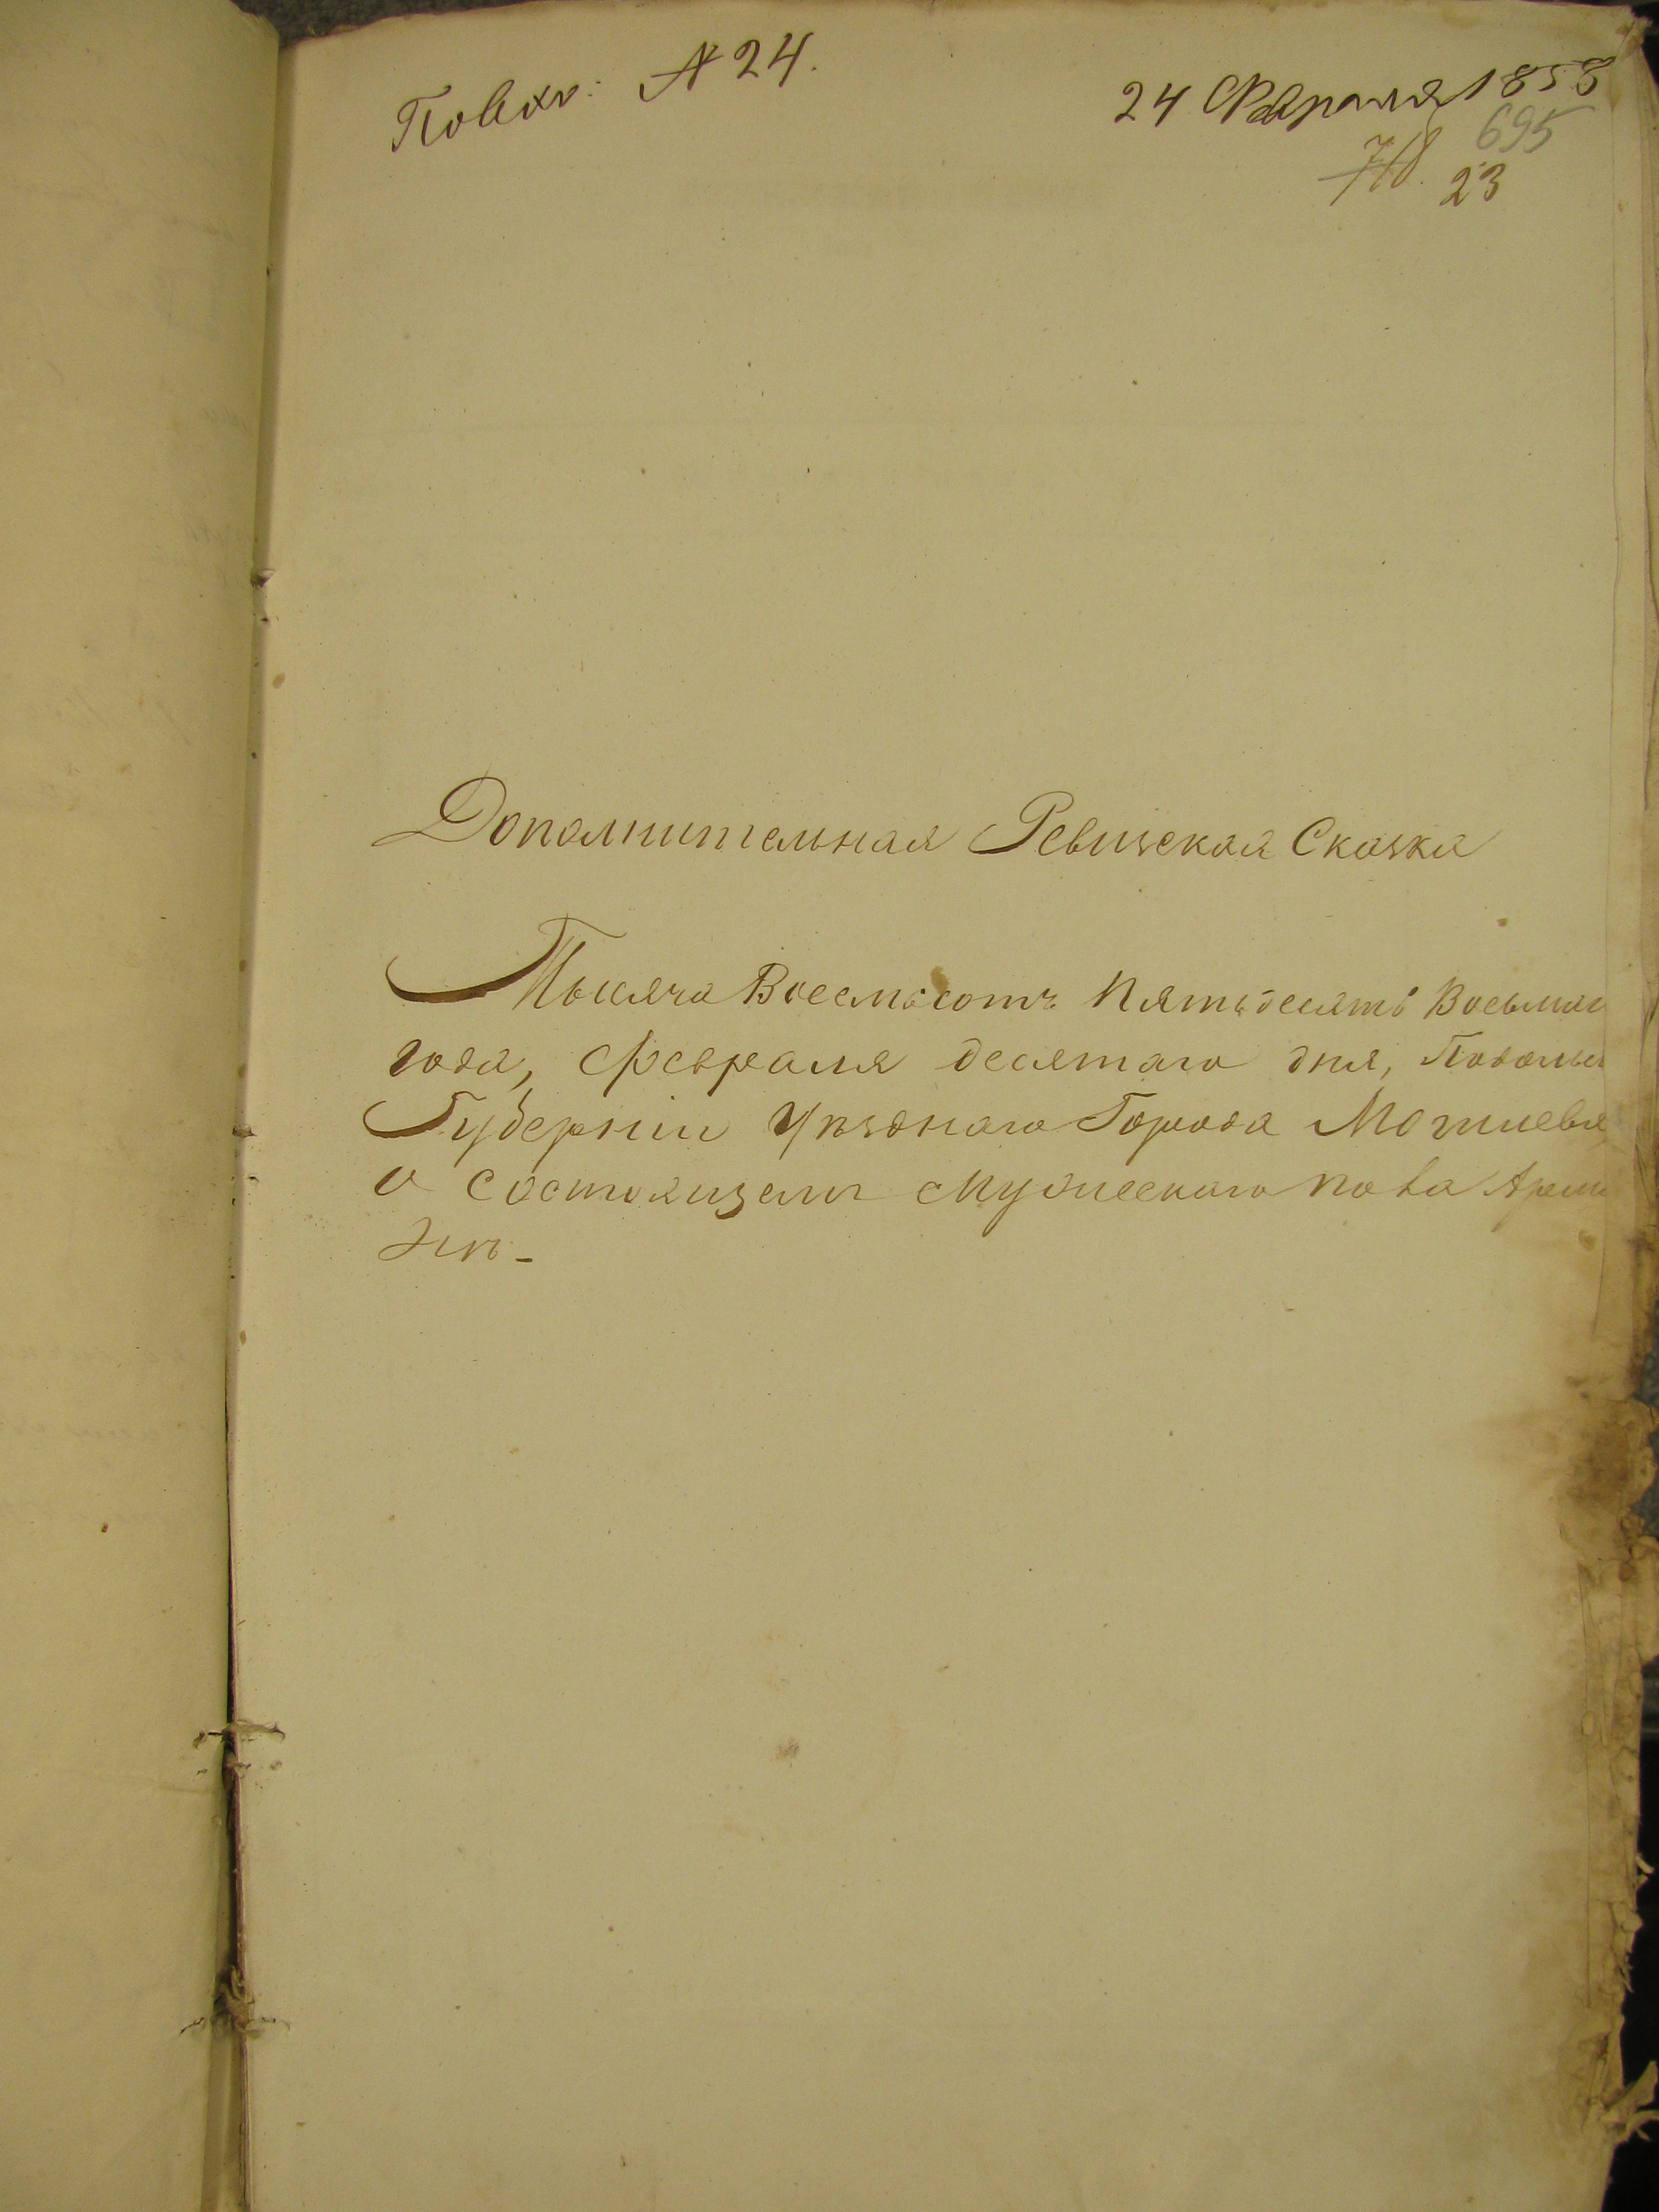 № 24.
24 Февраля 1858
695
718. 23
Дополнительная Ревизская Сказка
Тысяча Восемьсотъ Пятьдесятъ Восьмаг
года, Февраля десятаго дня, Подольс
Губерніи Уѣзднаго Города Могилева
о состоящемъ мужескаго пола Армя
нѣ-